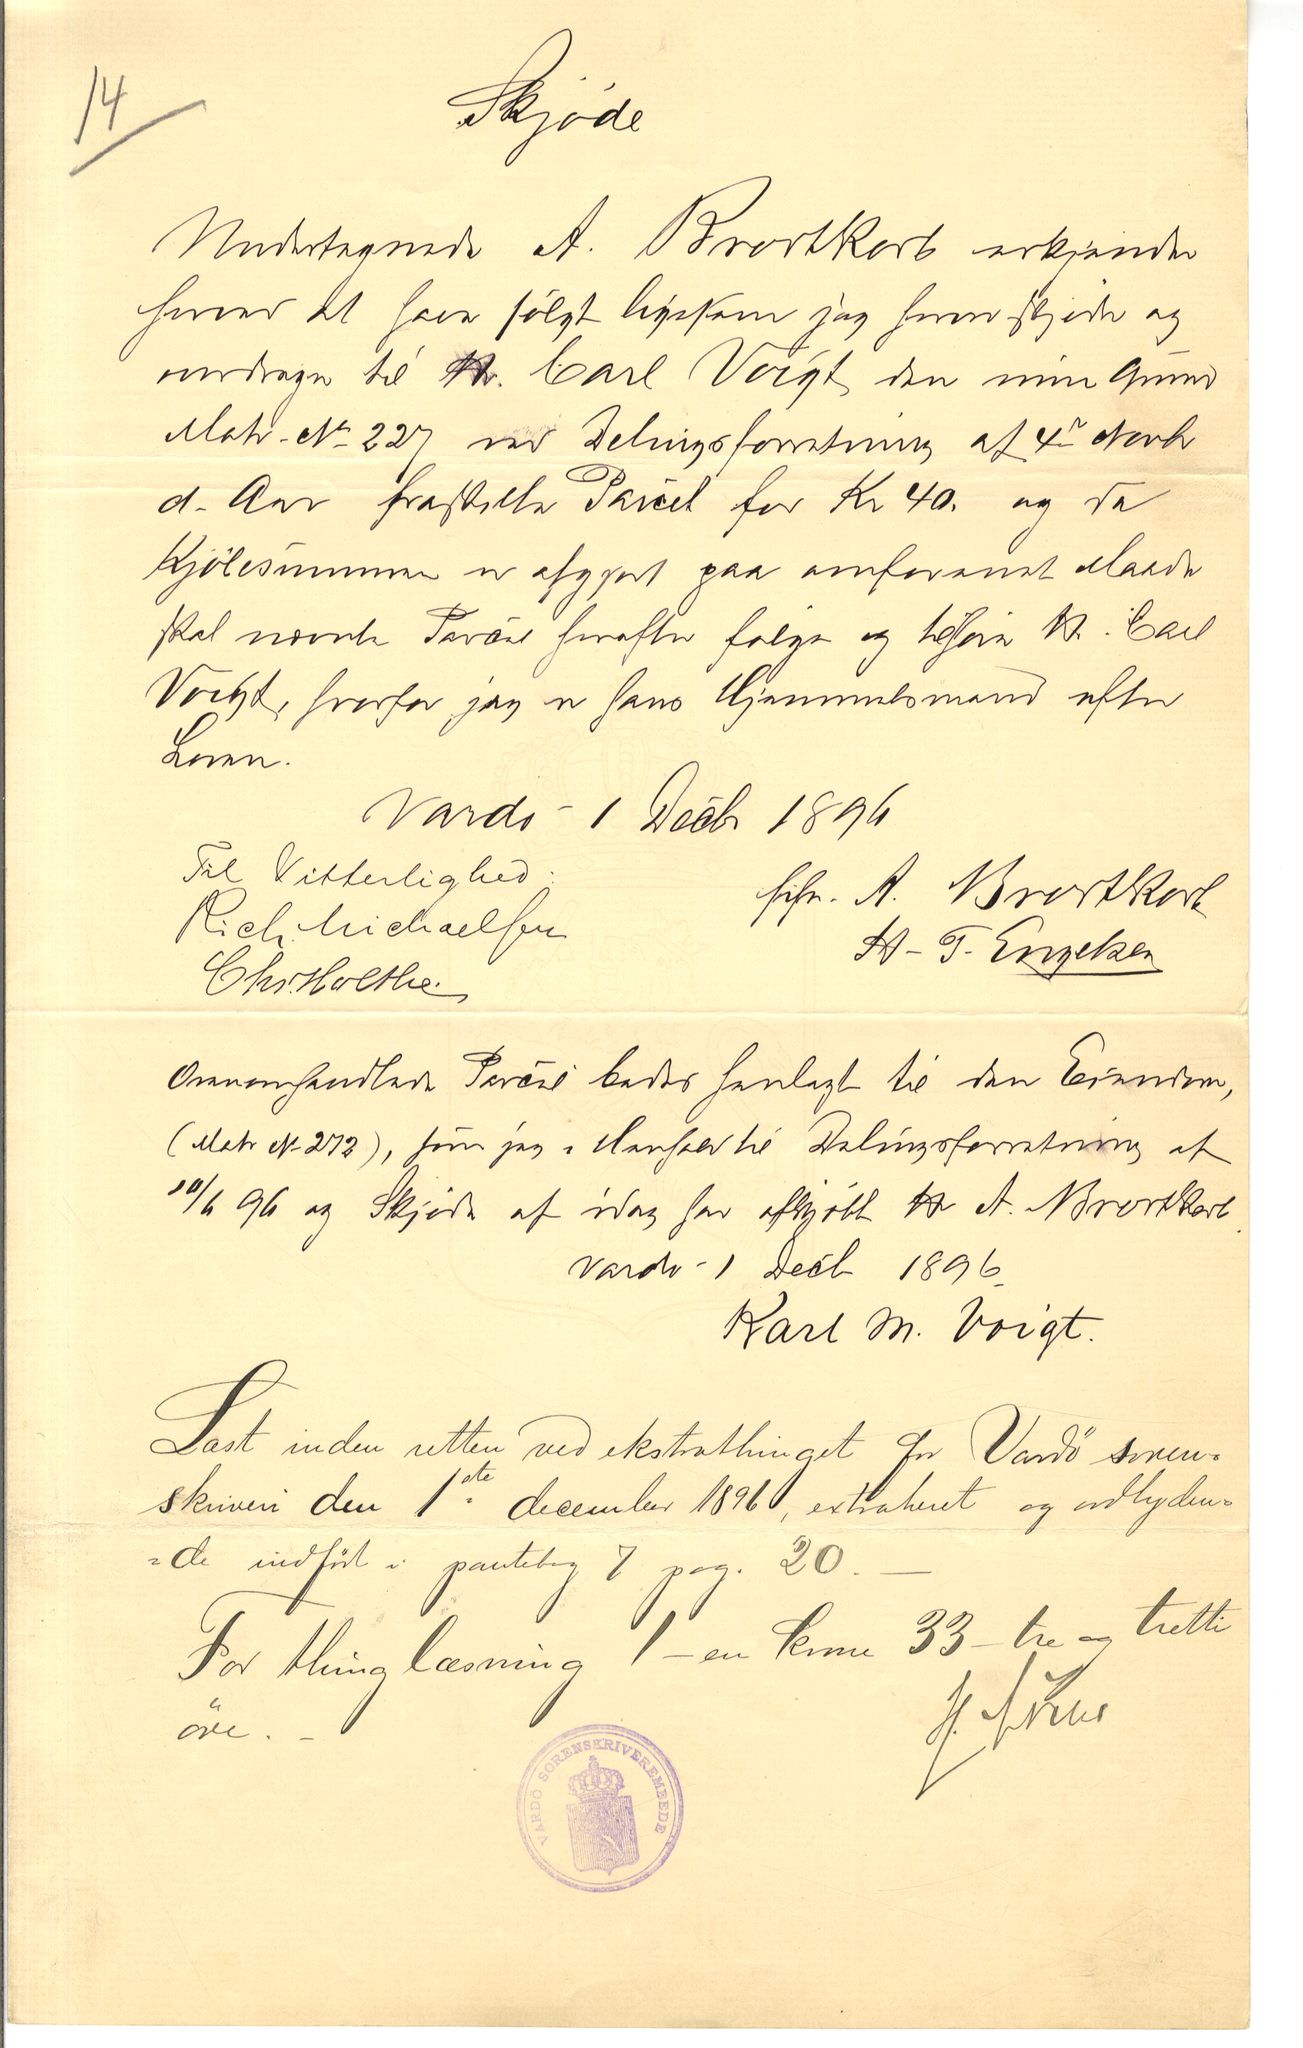 14
Skjöde
Undertegnede A. Brodtkorb erkjender
herved at have solgt ligesom jeg herved skjøder og
overdrager til Hr. Carl Voigt den min Grund
Matr. No 227 ved Delingsforretning af 4de Novbr
d. Aar fraskilte Parcel for Kr 40. og da
Kjöbesummen er afgjort paa omforenet Maade
skal nævnte Parcel herefter følge og tilhøre Hr. Carl
Voigt, hvorfor jeg er hans Hjemmelsmand efter
Loven.
Vardö 1 Decbr 1896
Til Vitterlighed:
Rich. Michaelsen
Chr. Holthe
A. Brodtkorb
H. T. Engelsen
Ovenomhandlede Parcel bedes henlagt til den Eiendom,
(Matr No 272), som jeg i Henhold til Delingsforretning af
10/6 96 og Skjøde af idag har afkjøbt Hr A. Brodtkorb
Vardö 1 Decb 1896
Karl M. Voigt.
Læst inden retten ved ekstrathinget for Vardö soren-
skriveri den 1ste december 1896, extraheret og ordlyden-
=de indført i pantebog 7 pag. 20. —
For thinglæsning 1 - en krone 33 - tre og tretti
öre. -
VARDÖ SORENSKRIVEREMBEDE